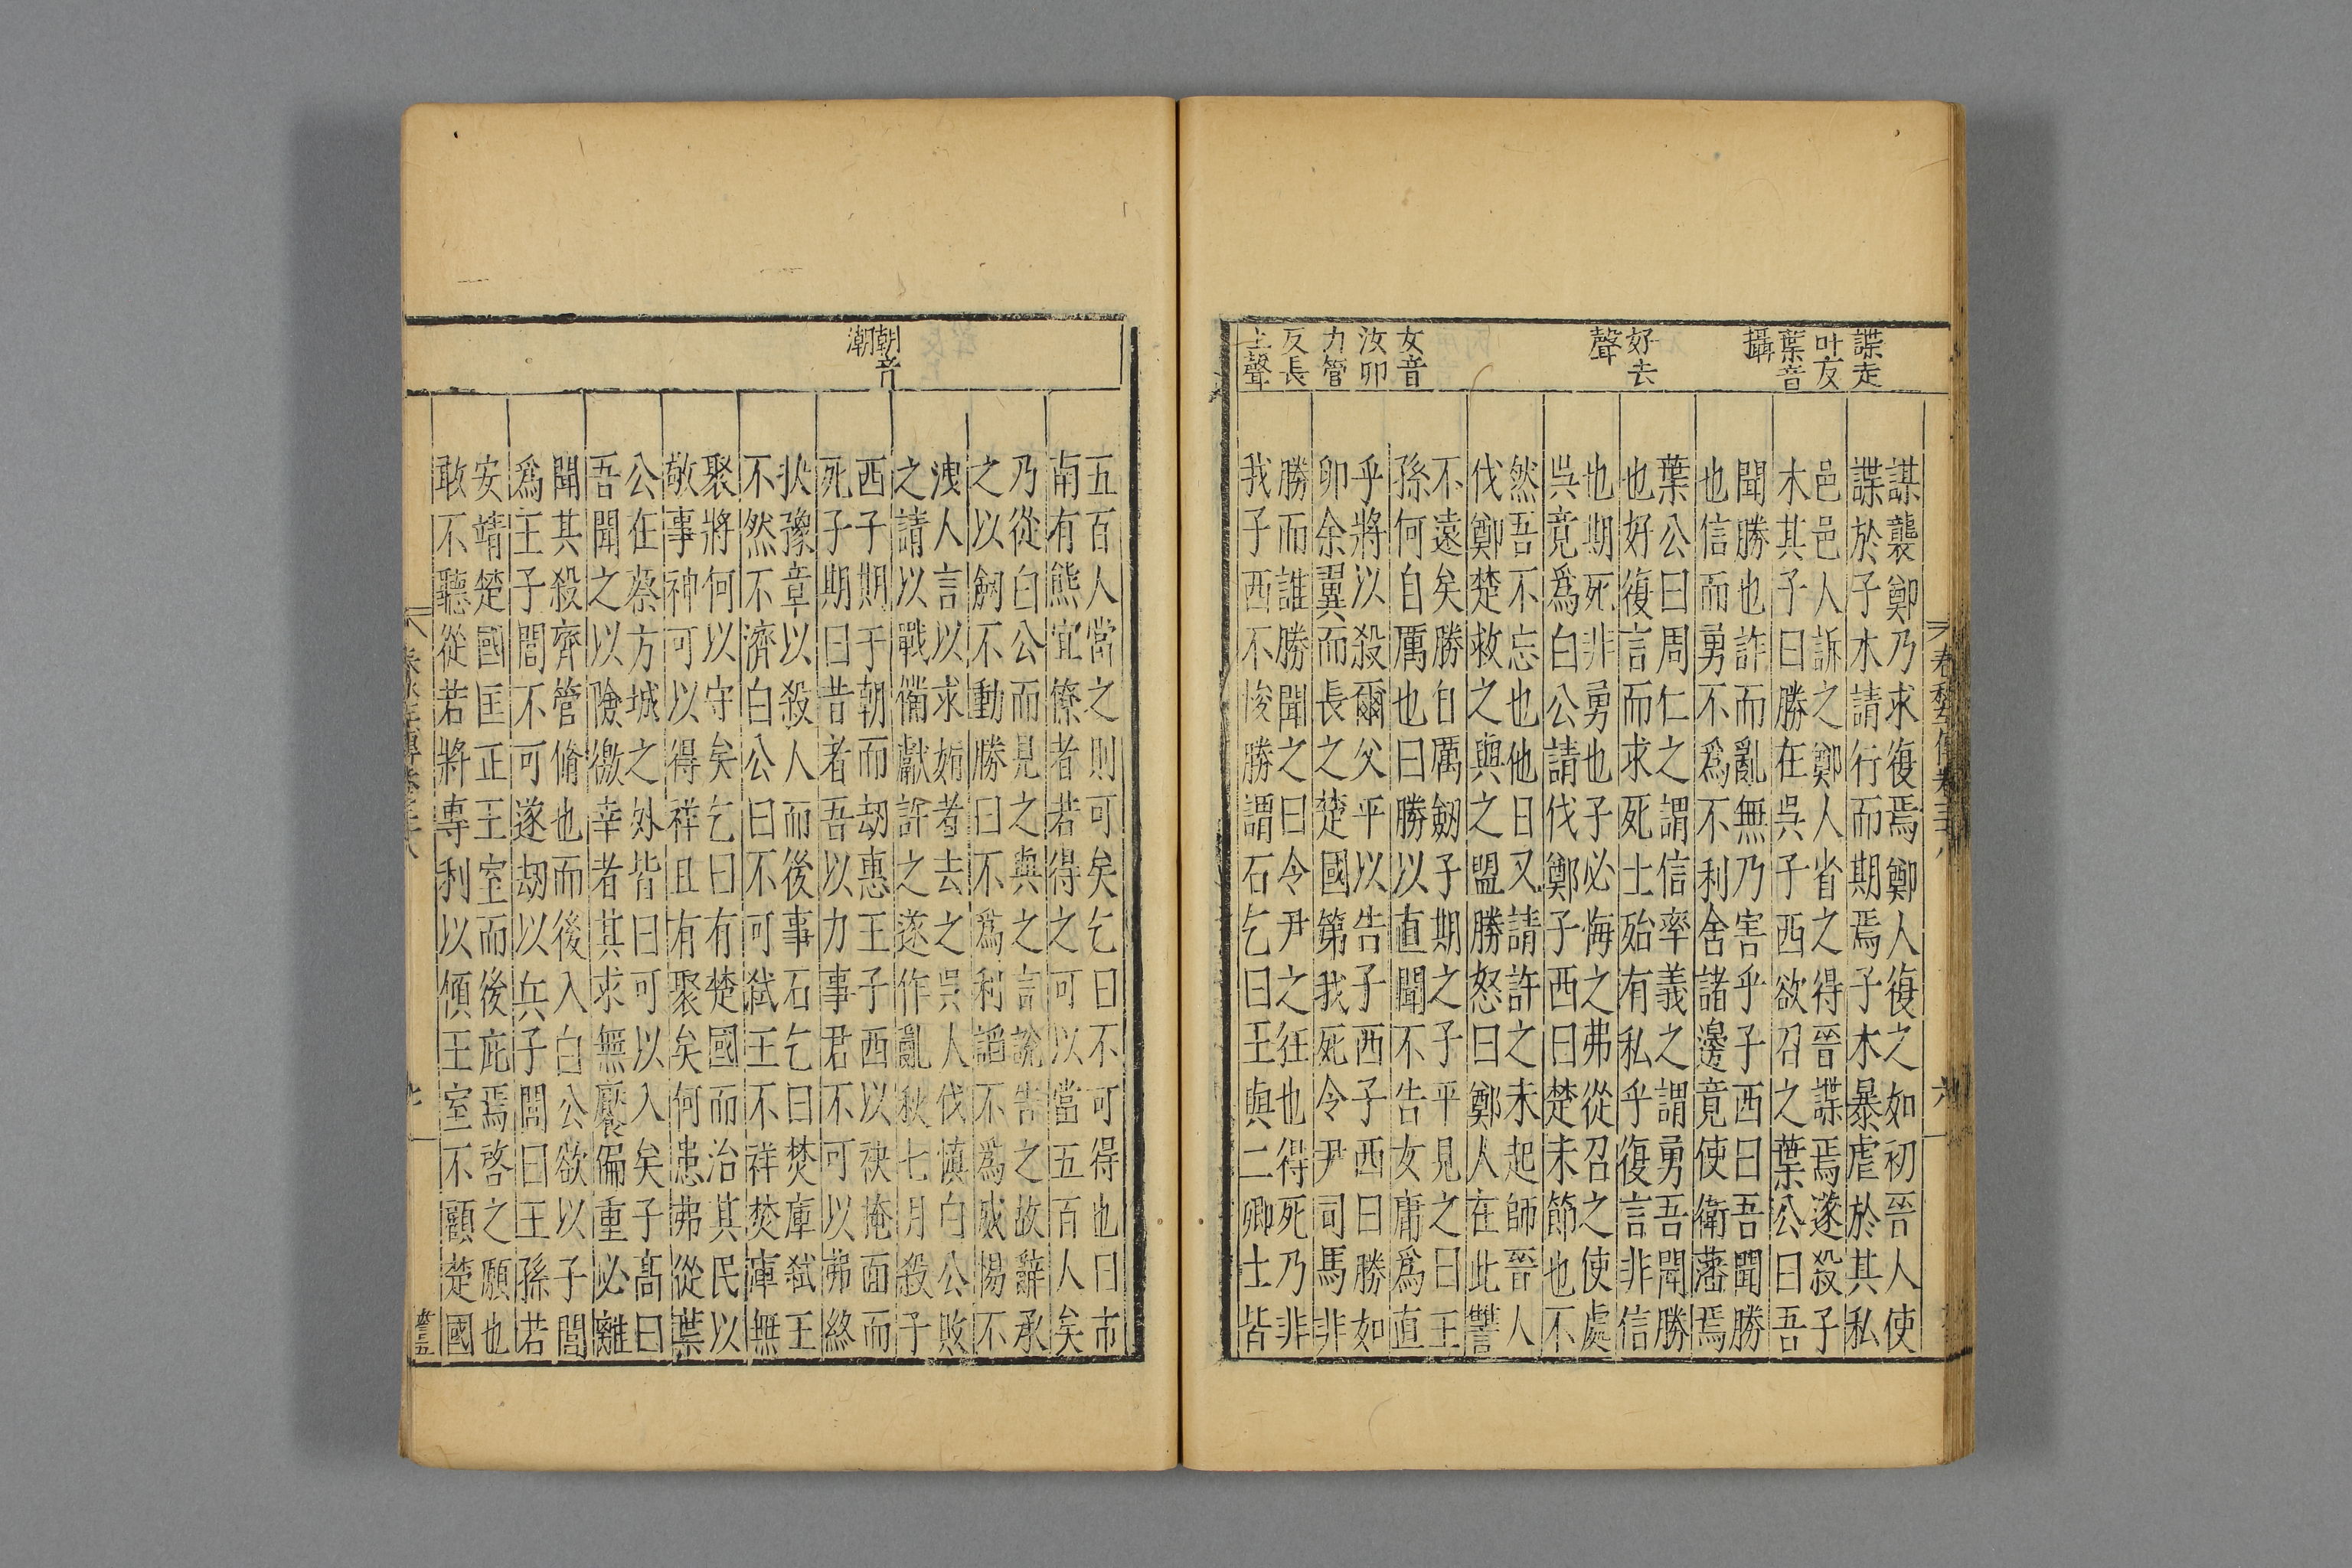 諜走
叶反
葉音
攝
好去
聲
女音
汝卵
力管
反長
上聲
謀襲鄭乃求復焉鄭人復之如初晉人使
諜於子木請行而期焉子木暴虐於其私
邑邑人訴之鄭人省之得晉諜焉遂殺子
木其子曰勝在吳子西欲召之葉公曰吾
聞勝也詐而亂無乃害乎子西曰吾聞勝
也信而勇不爲不利舍諸邊竟使衛藩焉
葉公曰周仁之謂信率義之謂勇吾聞勝
也好復言而求死士殆有私乎復言非信
也期死非勇也子必悔之弗從召之使處
吳竟爲白公請伐鄭子西曰楚未節也不
然吾不忘也他日又請許之未起師晉人
伐鄭楚救之與之盟勝怒曰鄭人在此讐
不遠矣勝自厲劒子期之子平見之曰王
孫何自厲也曰勝以直聞不告女庸爲直
乎將以殺爾父平以告子西子西曰勝如
卵余翼而長之楚國第我死令尹司馬非
勝而誰勝聞之曰令尹之狂也得死乃非
我子西不悛勝謂石乞曰王與二卿士皆
朝音
潮
五百人當之則可矣乞曰不可得也曰市
南有熊宜僚者若得之可以當五百人矣
乃從白公而見之與之言說告之故辭承
之以劒不動勝曰不爲利謟不爲威惕不
洩人言以求媚者去之吳人伐慎白公敗
之請以戰備獻許之遂作亂秋七月殺子
西子期于朝而劫惠王子西以袂掩面而
死子期曰昔者吾以力事君不可以弗終
抶豫章以殺人而後事石乞曰焚庫弑王
不然不濟白公曰不可弑王不祥焚庫無
聚將何以守矣乞曰有楚國而治其民以
敬事神可以得祥且有聚矣何患弗從葉
公在蔡方城之外皆曰可以入矣子高曰
吾聞之以險徼幸者其求無饜偏重必離
聞其殺齊管脩也而後入白公欲以子閭
爲王子閭不可遂劫以兵子閭曰王孫若
安靖楚國匡正王室而後庇焉啓之願也
敢不聽從若將專利以傾王室不顧楚國